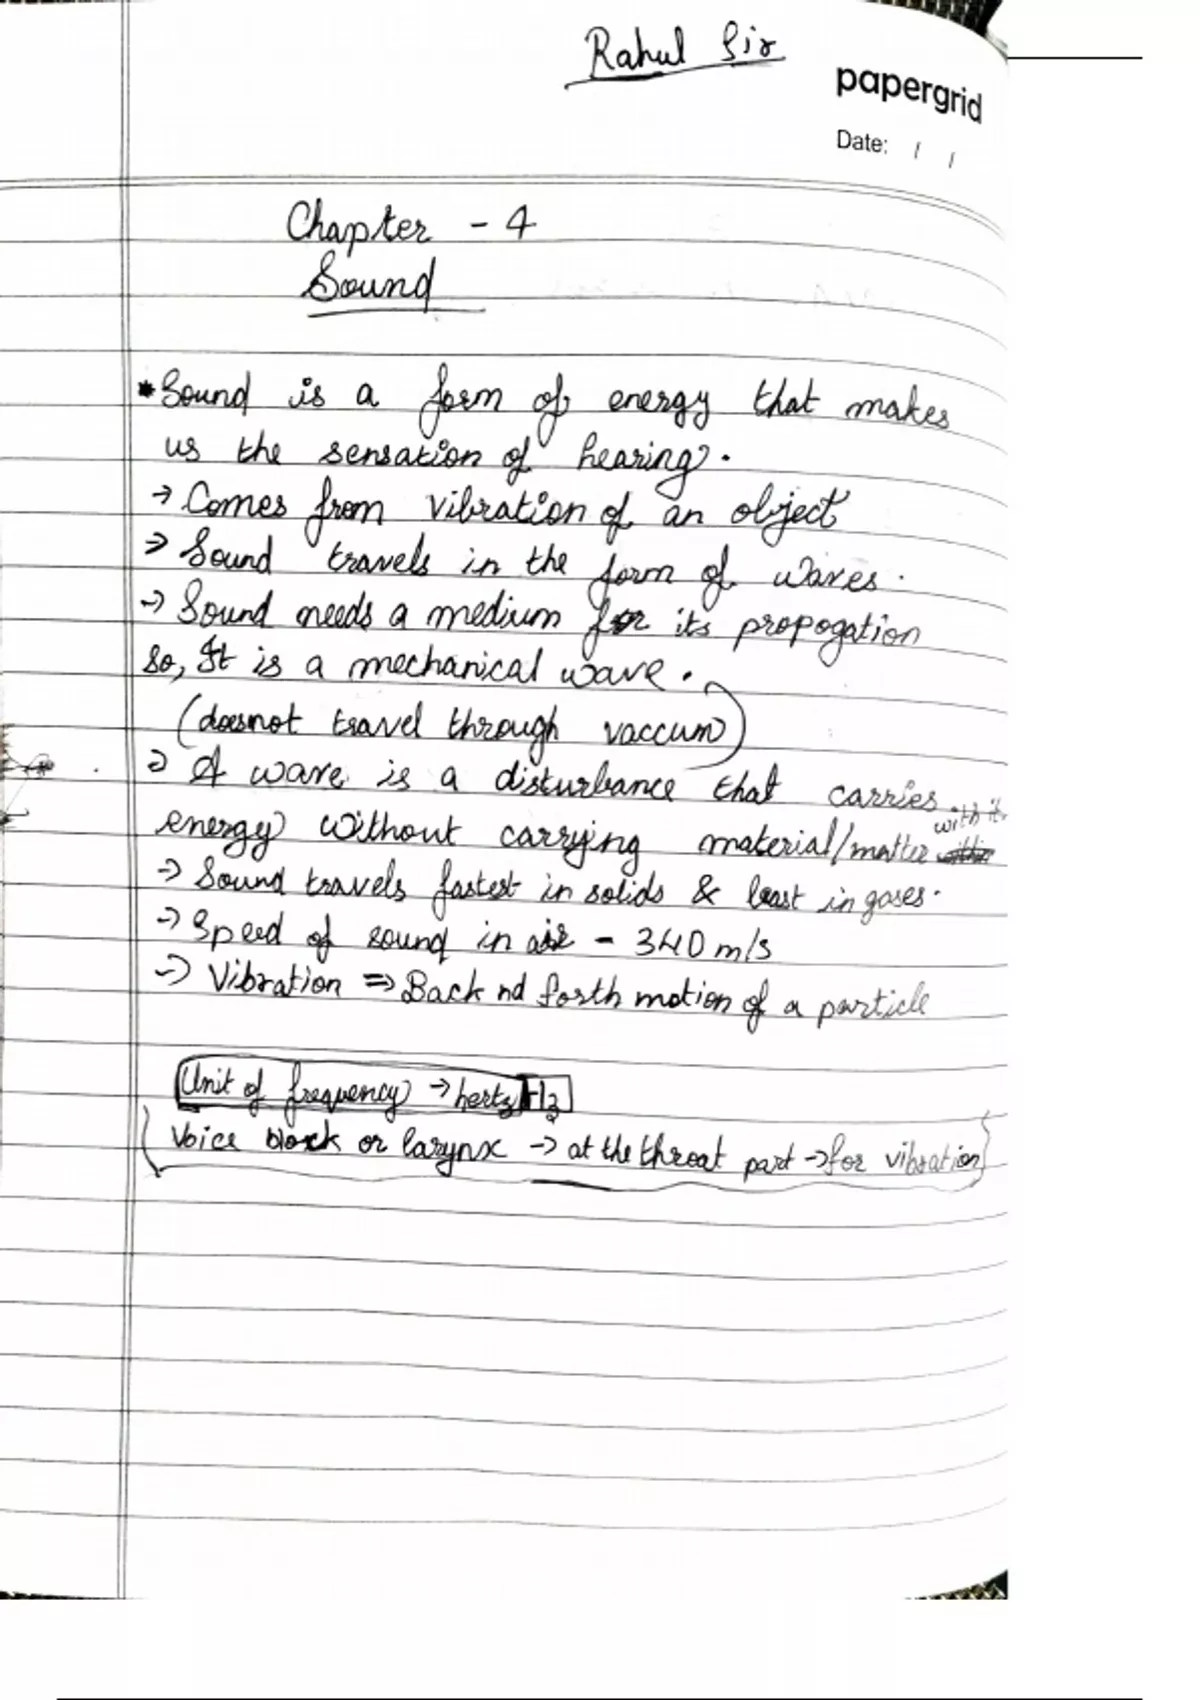 Rahul Sir
papergrid
Date: / /
Chapter - 4
Sound
* Sound is a form of energy that makes
us the sensation of hearing.
→ Comes from vibration of an object
→ Sound travels in the form of waves.
→ Sound needs a medium for its propogation
so, It is a mechanical wave.
(doesnot travel through vaccum)
→ A wave is a disturbance that carries
energy without carrying material/matter with it.
→ Sound travels fastest in solids & least in gases.
→ Speed of sound in air - 340 m/s
→ Vibration ⇒ Back nd forth motion of a particle
Unit of frequency → hertz Hz
Voice block or larynx → at the throat part → for vibration